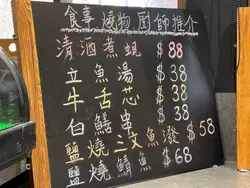 食事燒物廚師推介
清酒煮蜆 $88
立魚湯 $38
牛舌芯 $38
白鱔串 $38
鹽燒三文魚潑 $58
鹽燒鯖魚 $68